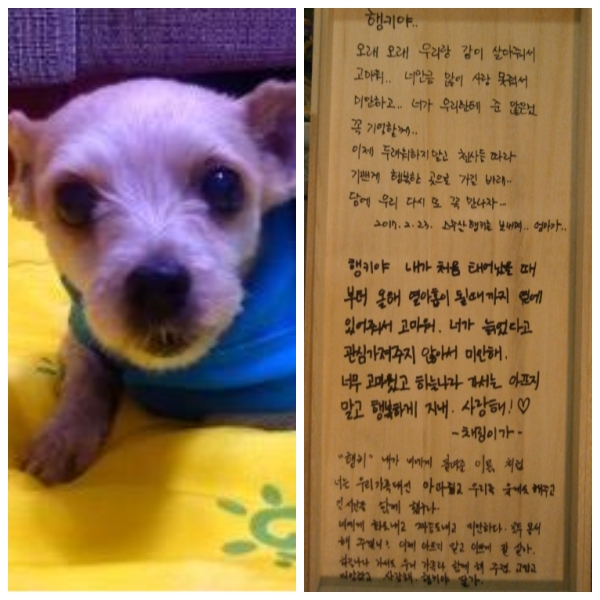 행키야..
오래 오래 우리랑 같이 살아줘서
고마워.. 너만큼 많이 사랑 못줘서
미안하고.. 너가 우리한테 준 많은것
꼭 기억할께..
이제 두려워하지말고 천사들 따라
기쁘게 행복한 곳으로 가길 바래..
담에 우리 다시 또 꼭 만나자~
2017. 2. 23. 행키를 보내며.. 엄마가..
행키야 내가 처음 태어났을 때
부터 올해 열아홉이 될때까지 옆에
있어줘서 고마워. 너가 늙었다고
관심가져주지 않아서 미안해.
너무 고마웠고 하늘나라 가서는 아프지
말고 행복하게 지내. 사랑해!♡
-채림이가-
"행키" 내가 너에게 이름 처럼
너는 우리가족에겐 우리를 해주고
너에게 화도내고 미안하다.
해 이제 아프지 말고
하늘나라 가서도 우리 가족과 함께 해 주렴. 고맙고
사랑해. 행키야